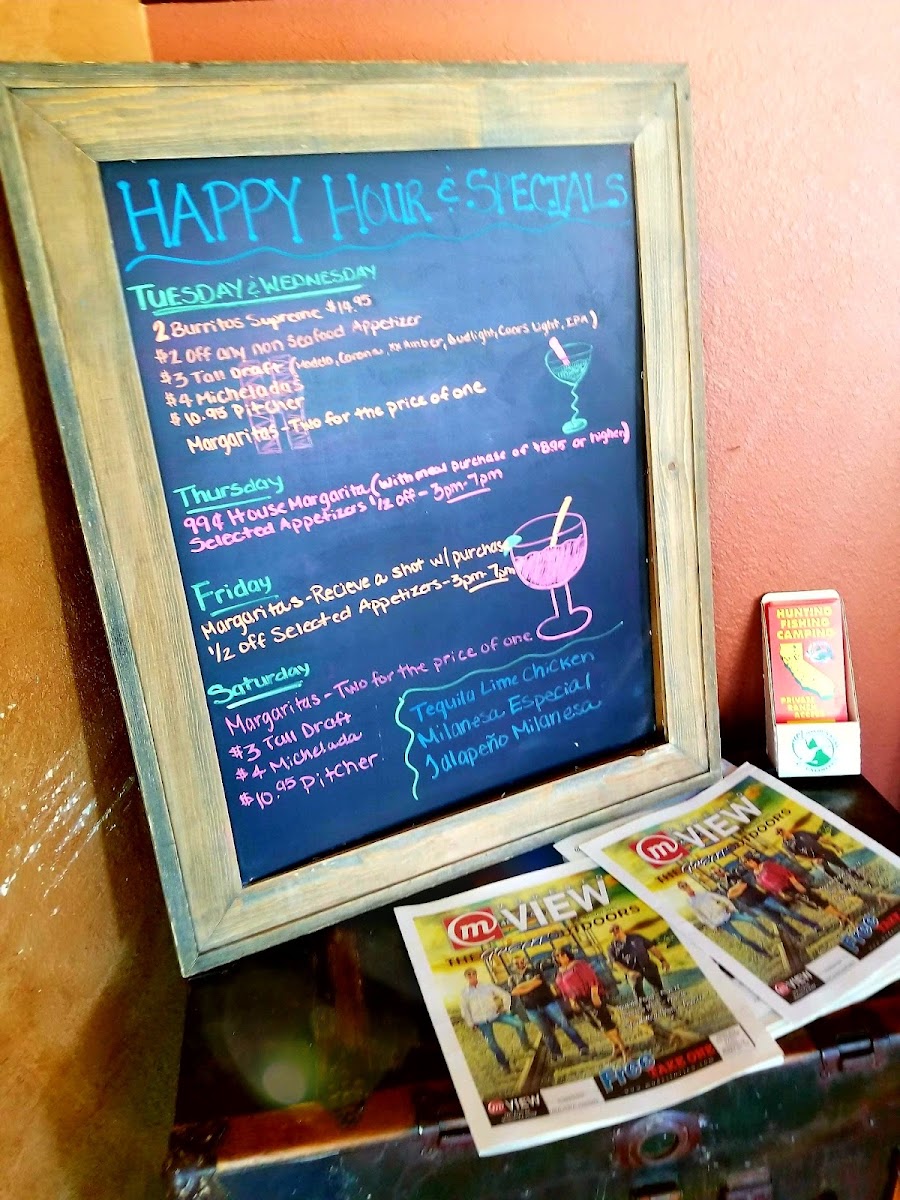 HAPPY HOUR & SPECIALS
TUESDAY & WEDNESDAY
2 Burritos Supreme $14.95
$2 off any non Seafood Appetizer
$3 Tall Draft (Modelo, Corona, XX Amber, Budlight, Coors Light, IPA)
$4 Micheladas
$10.95 Pitcher
Margaritas - Two for the price of one
Thursday
99¢ House Margarita (with meal purchase of $8.95 or higher)
Selected Appetizers 1/2 off - 3pm-7pm
Friday
Margaritas - Recieve a shot w/ purchase
1/2 off Selected Appetizers - 3pm-7pm
Saturday
Margaritas - Two for the price of one
$3 Tall Draft
$4 Michelada
$10.95 Pitcher
Tequila Lime Chicken
Milanesa Especial
Jalapeño Milanesa
HUNTING
FISHING
CAMPING
PRIVATE
RANCH
m VIEW
THE OUTDOORS
Free
TAKE ONE
m VIEW
m VIEW
THE OUTDOORS
Free
m VIEW